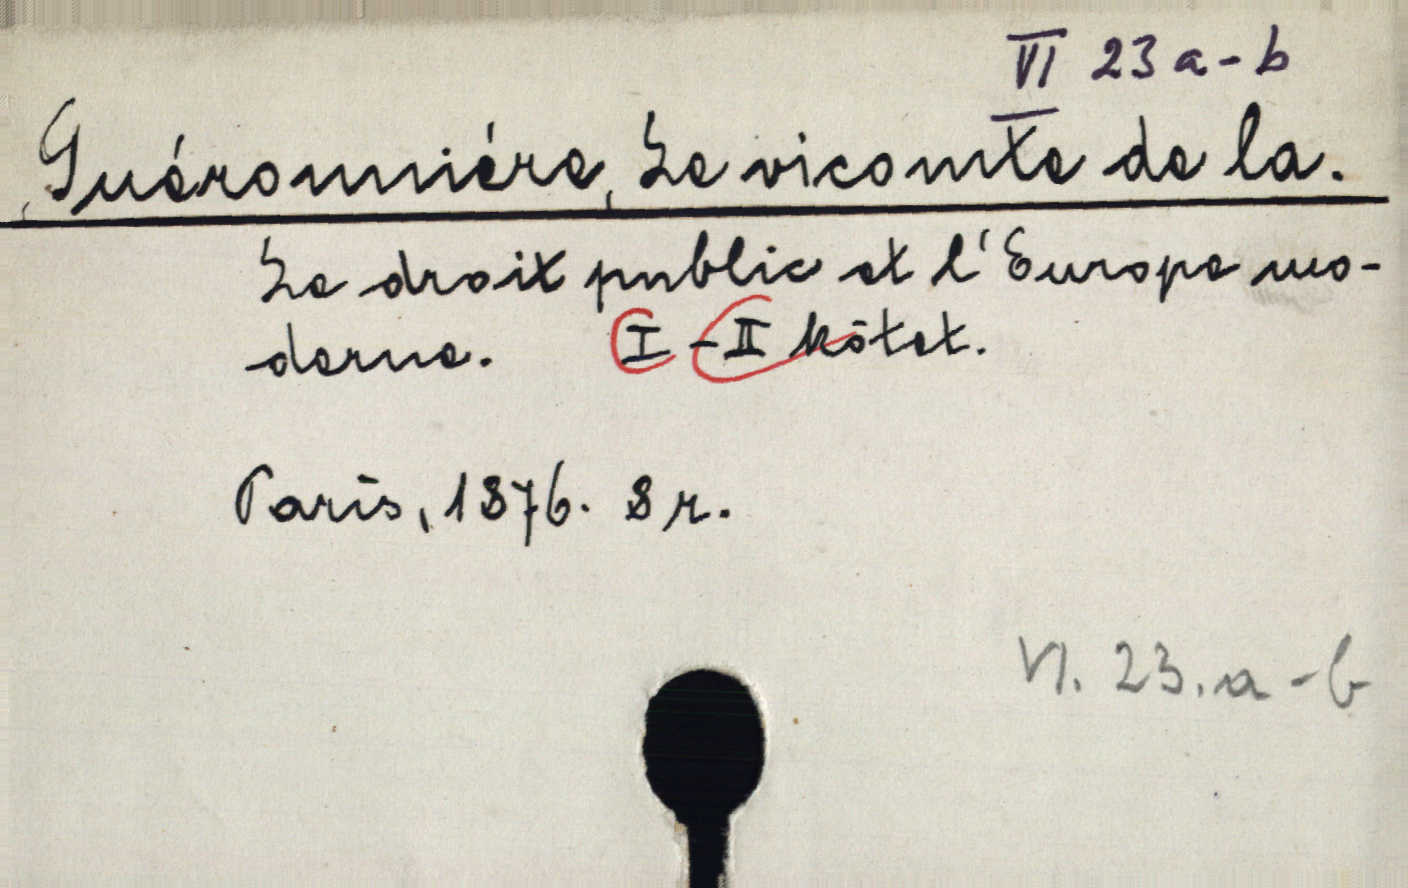 VI 23 a-b
Guéronniére, Le vicomte de la.
Le droit public et l'Europe mo-
derne. I-II kötet.
Paris, 1876. 8 r.
VI. 23. a-b